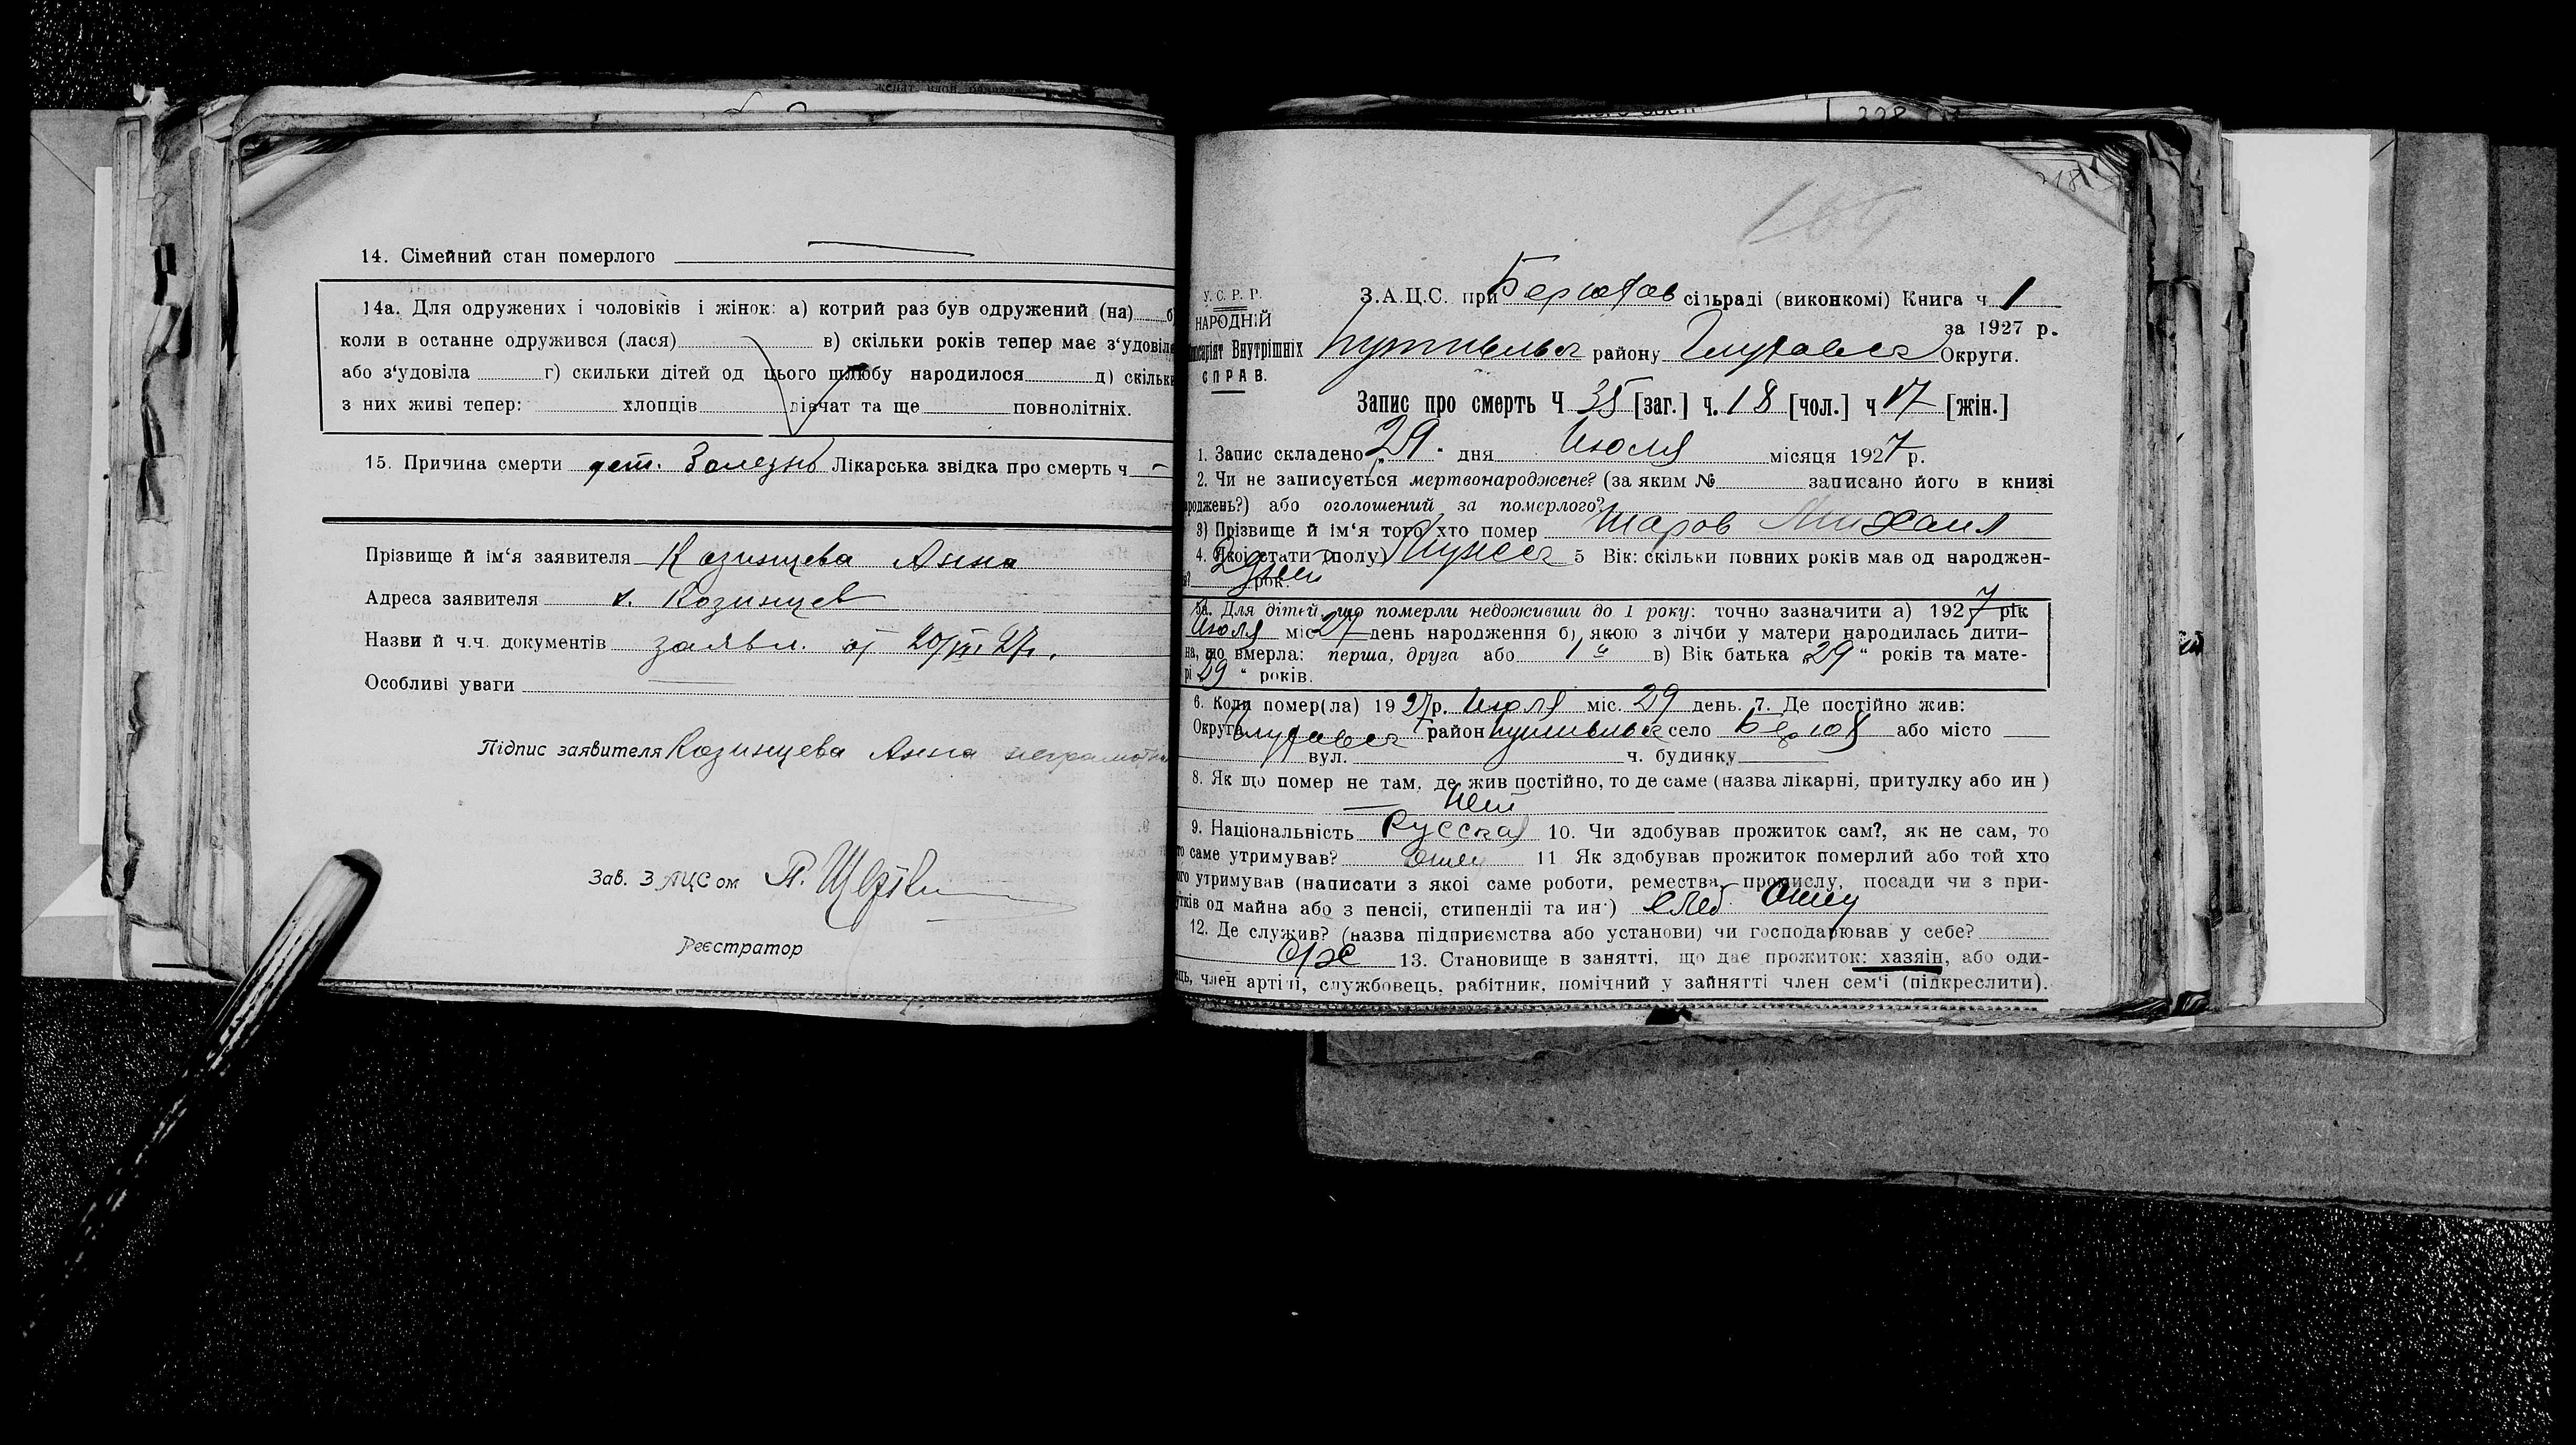 14. Сімейний стан померлого
14а. Для одружених і чоловіків і жінок: а) котрий раз був одружений (на)
коли в останне одружився (лася) в) скільки років тепер має з‘удовіля
або з‘удовіла г) скильки дітей од цього шлюбу народилося д) скільки
з них живі тепер: хлопців дівчат та ще повнолітніх.
15. Причина смерти дет. болезнь Лікарська звідка про смерть ч –
Прізвище й ім‘я заявителя Казинцева Анна
Адреса заявителя Казинцев
Назви й ч.ч. документів заявл. от 20/VII 27г.
Особливі уваги
Підпис заявителя Казинцева Анна неграмотна
Зав. ЗАЦСом П.
Реєстратор
У.С.Р.Р.
НАРОДНІЙ
Внутрішніх
СПРАВ.
З.А.Ц.С. при Берюхов сільраді (виконкомі) Книга ч 1
за 1927 р.
Путивльск району Глуховск Округи.
Запис про смерть Ч 35 [заг.] ч. 18 [чол.] ч 17 [жін.]
1. Запис складено „29" дня Июля місяця 1927 р.
2. Чи не записується мертвонароджене? (за яким № записано його в книзі
роджень?) або оголошений за померлого?
3) Прізвище й ім‘я того хто помер Шаров Михаил
4. Якоі стати (полу) Мужск 5 Вік: скільки повних років мав од народжен-
2 дней рок.
5а. Для дітей що померли недоживши до 1 року: точно зазначити а) 1927 рік
Июля міс 27 день народження б) якою з лічби у матери народилась дити-
на, що вмерла: перша, друга або 1й в) Вік батька „29“ років та мате-
рі „29“ років.
6. Коли помер(ла) 1927р. Июля міс. 29 день. 7. Де постійно жив:
Округа Глуховск район Путивльск село Берюх або місто
вул. ч. будинку
8. Як що помер не там, де жив постійно, то де саме (назва лікарні, притулку або ин)
— Нет
9. Національність Русская 10. Чи здобував прожиток сам?, як не сам, то
то саме утримував? Отец 11 Як здобував прожиток померлий або той хто
ого утримував (написати з якоі саме роботи, ремества, промислу, посади чи з при-
утків од майна або з пенсіі, стипендіі та ин·)
12. Де служив? (назва підприємства або установи) чи господарював у себе?
13. Становище в занятті, що дає прожиток: хазяін, або оди-
ець, член артілі, службовець, рабітник, помічний у зайнятті член сем‘ї (підкреслити).